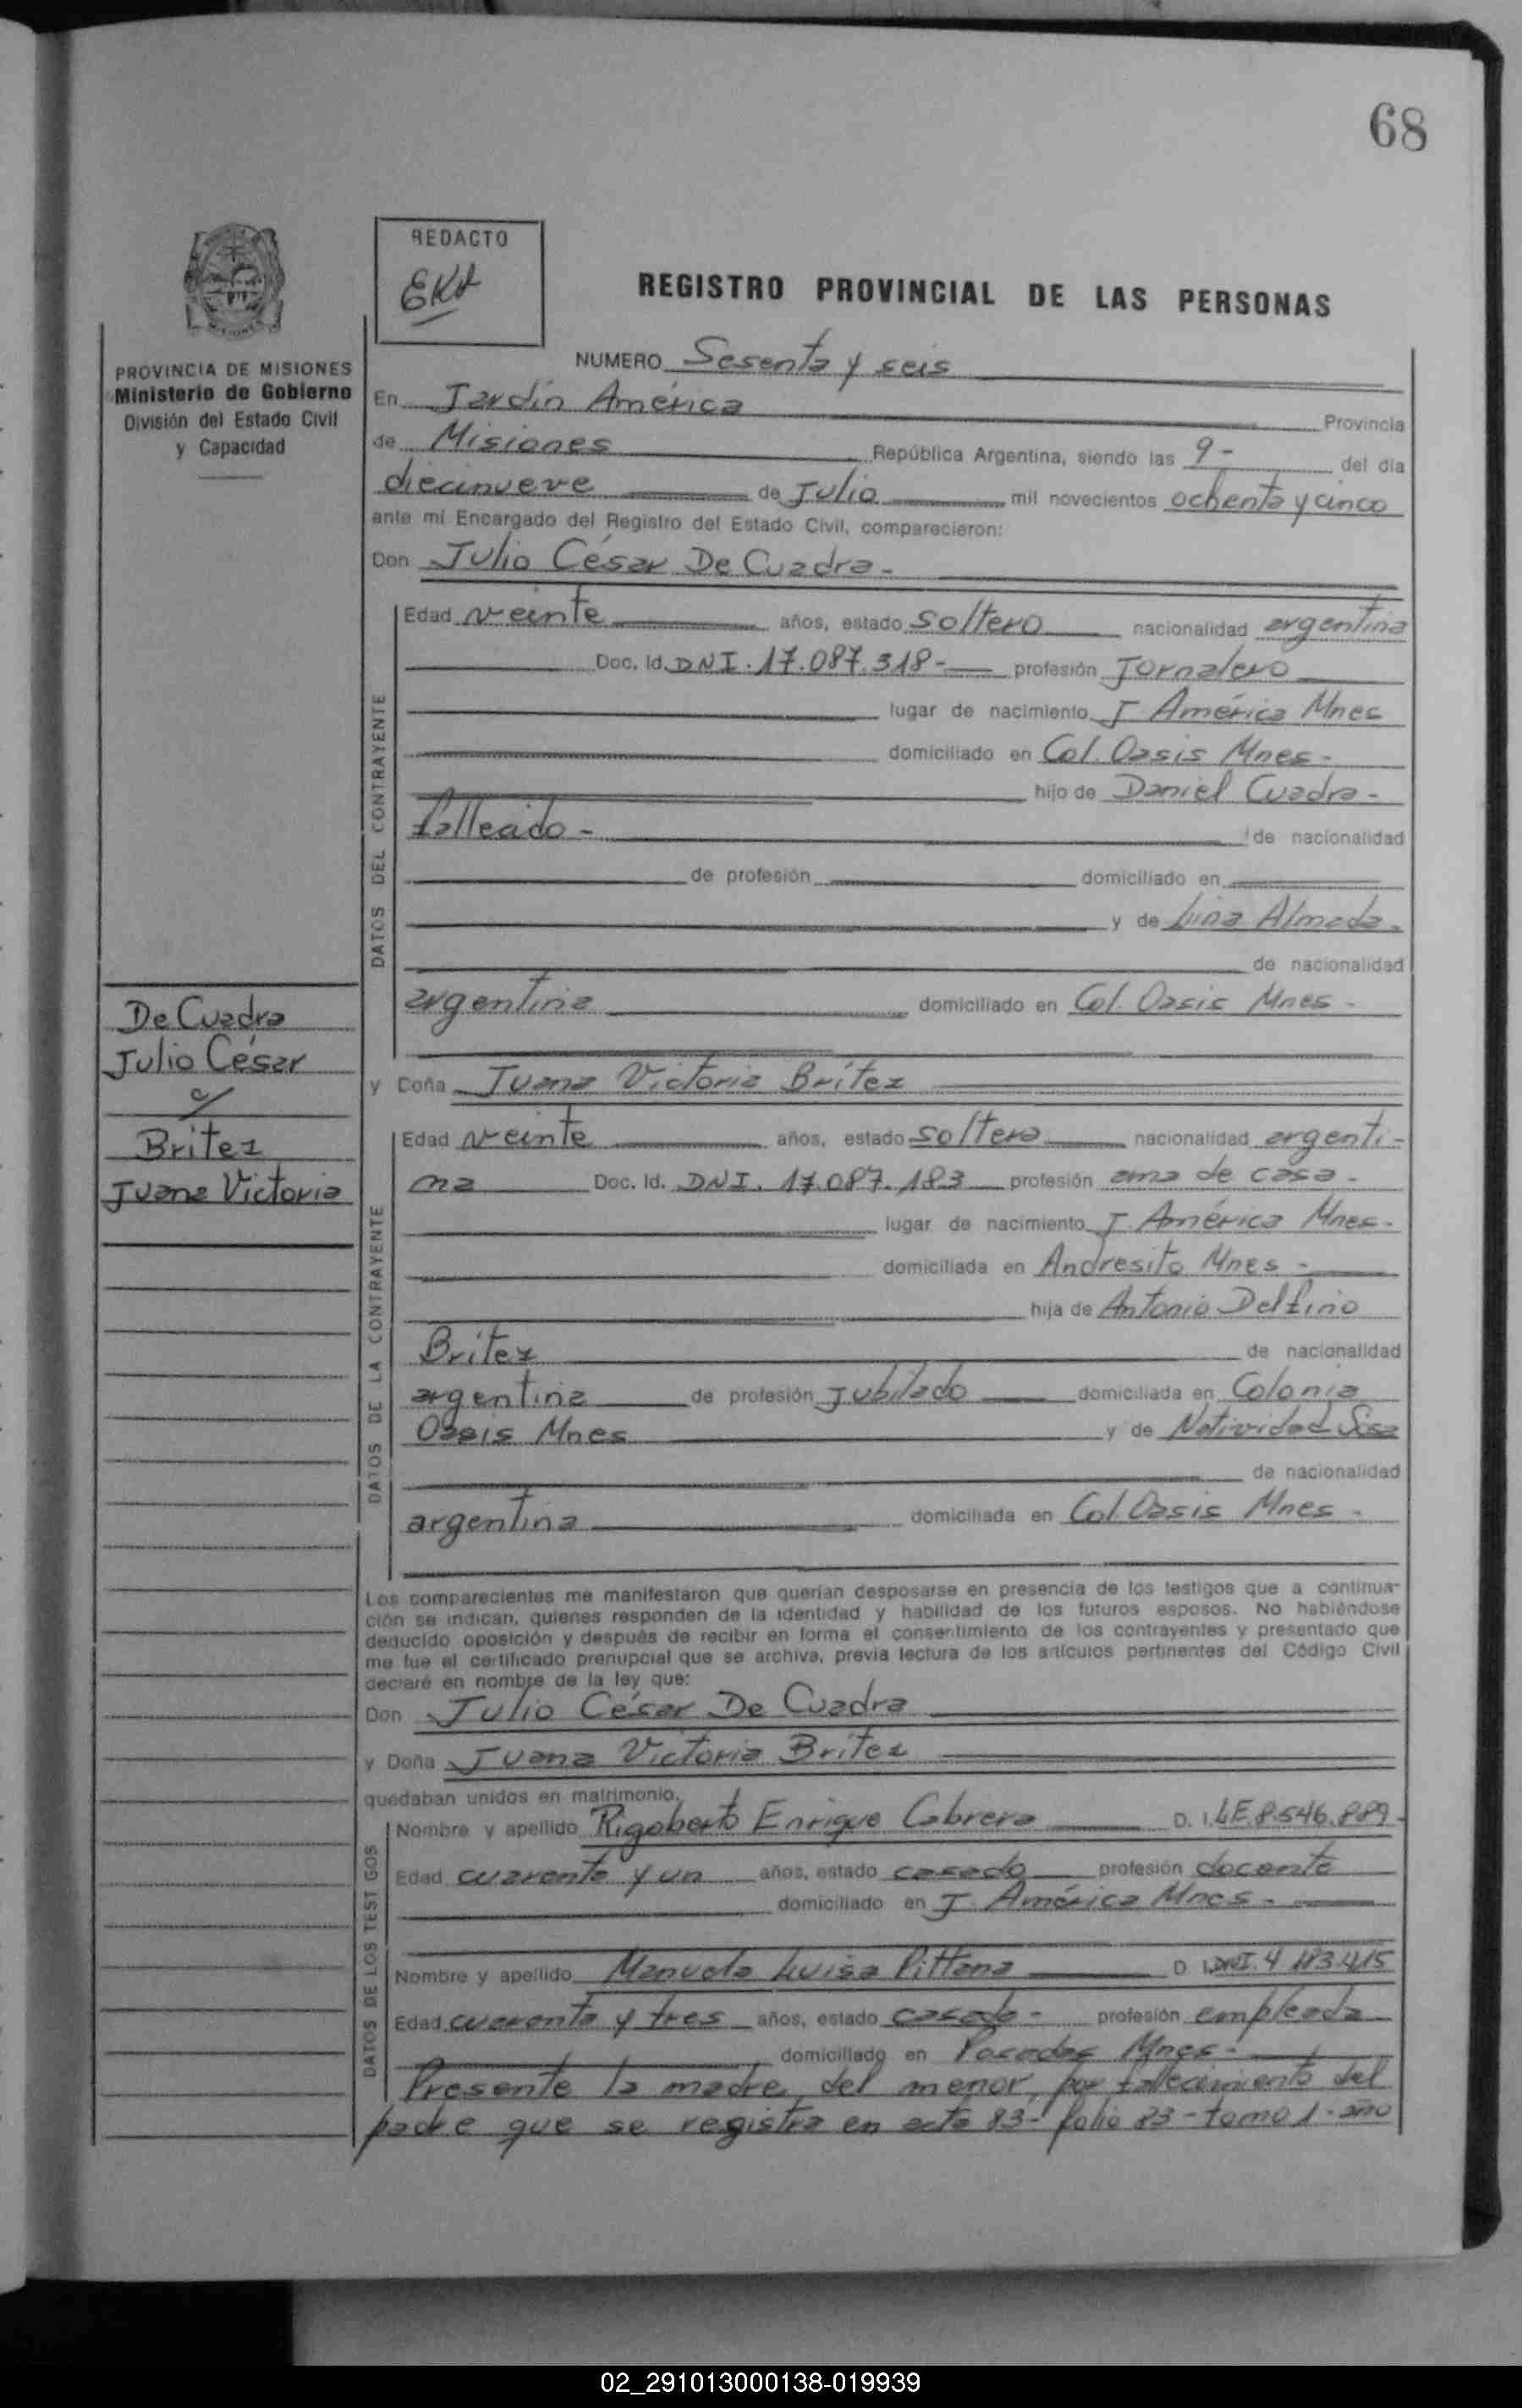 68
REDACTO
REGISTRO PROVINCIAL DE LAS PERSONAS
PROVINCIA DE MISIONES
Ministerio de Gobierno
División del Estado Civil
y Capacidad
NUMERO Sesenta y seis
En Jardín América Provincia
de Misiones República Argentina, siendo las 9 - del día
diecinueve de Julio mil novecientos ochenta y cinco
ante mí Encargado del Registro del Estado Civil, comparecieron:
Don Julio César De Cuadra -
DATOS DEL CONTRAYENTE
Edad veinte años, estado soltero nacionalidad argentina
Doc. Id. DNI. 17.087.318 - profesión Jornalero
lugar de nacimiento J América Mnes
domiciliado en Col. Oasis Mnes -
hijo de Daniel Cuadra -
fallecido - de nacionalidad
de profesión domiciliado en
y de Lina Almada -
de nacionalidad
argentina domiciliado en Col. Oasis Mnes -
De Cuadra
Julio César
c/
Britez
Juana Victoria
y Doña Juana Victoria Britez
DATOS DE LA CONTRAYENTE
Edad veinte años, estado soltera nacionalidad argenti-
na Doc. Id. DNI. 17.087.183 profesión ama de casa -
lugar de nacimiento J. América Mnes -
domiciliada en Andresito Mnes -
hija de Antonio Delfino
Britez de nacionalidad
argentina de profesión jubilado domiciliada en Colonia
Oasis Mnes y de Natividad Sosa
de nacionalidad
argentina domiciliada en Col. Oasis Mnes -
Los comparecientes me manifestaron que querían desposarse en presencia de los testigos que a continua-
ción se indican, quienes responden de la identidad y habilidad de los futuros esposos. No habiéndose
deducido oposición y después de recibir en forma el consentimiento de los contrayentes y presentado que
me fue el certificado prenupcial que se archiva, previa lectura de los artículos pertinentes del Código Civil
declaré en nombre de la ley que:
Don Julio César De Cuadra
y Doña Juana Victoria Britez
quedaban unidos en matrimonio.
DATOS DE LOS TESTIGOS
Nombre y apellido Rigoberto Enrique Cabrera D. I. LE 8.546.889 -
Edad cuarenta y un años, estado casado profesión docente
domiciliado en J. América Mnes -
Nombre y apellido Manuela Luisa Pittana D I. DNI. 4 183.415
Edad cuarenta y tres años, estado casada - profesión empleada
domiciliado en Posadas Mnes -
Presente la madre del menor, por fallecimiento del
padre que se registra en acta 83 - folio 83 - tomo 1 - año
02_291013000138-019939